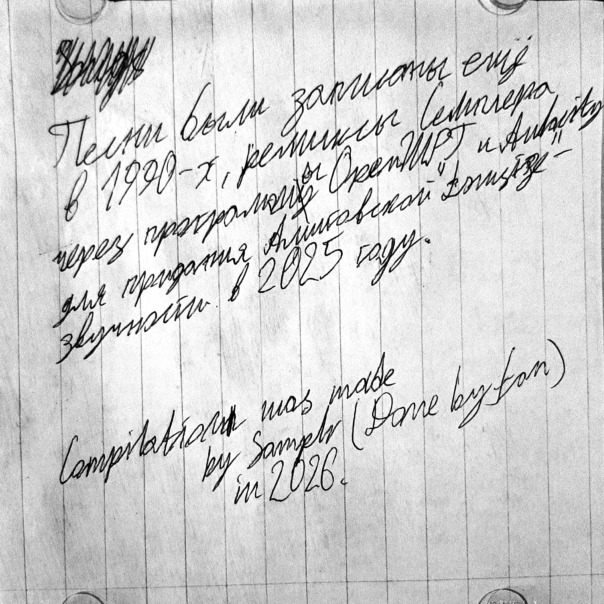 Песни были записаны ещё
в 1990-х, ремиксы Семплера
через программы OpenMPT и Audacity
для придания Амиговской
звучности в 2025 году.
Compilation was made
by Sampler (Done by fan)
in 2026.